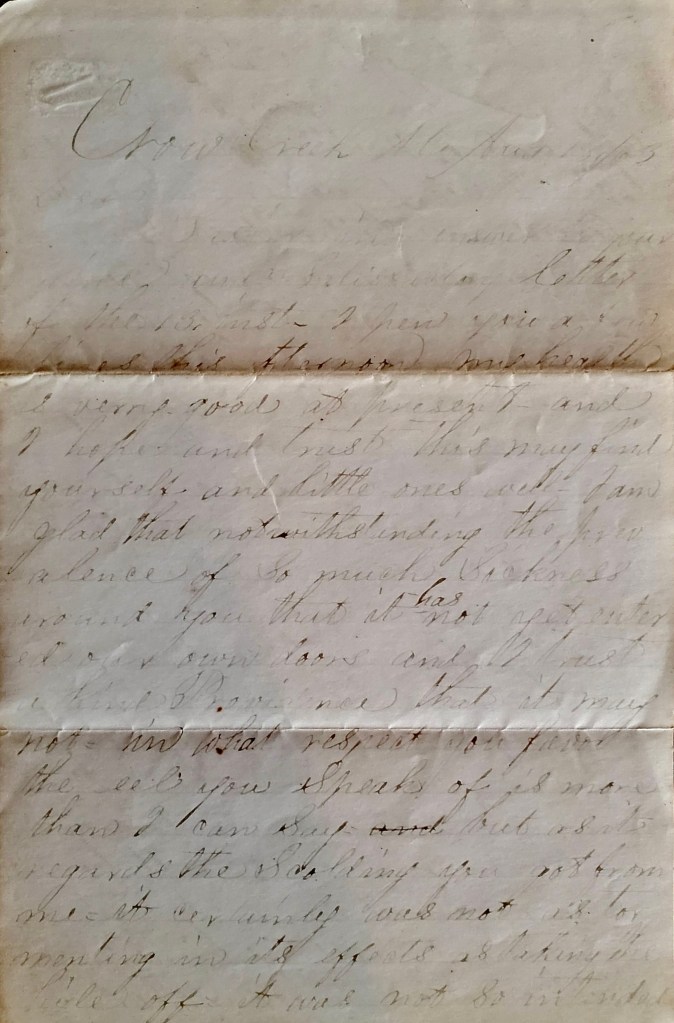 Crow Creek
answer to your
letter
of the 18 inst - I pen you a few
lines this afternoon my health
is verry good at present - and
I hope and trust this may find
yourself and little ones well - I am
glad that notwithstanding the prev
alence of so much Sickness
around you that it has not yet enter
ed our own doors and I trust
Providence that it may
not - in what respect you favor
the eel you Speak of is more
than I can Say - and but as it
regards the Scolding you got from
me - it certainly was not as tor
menting in its effects as taking the
hide off - it was not so intended